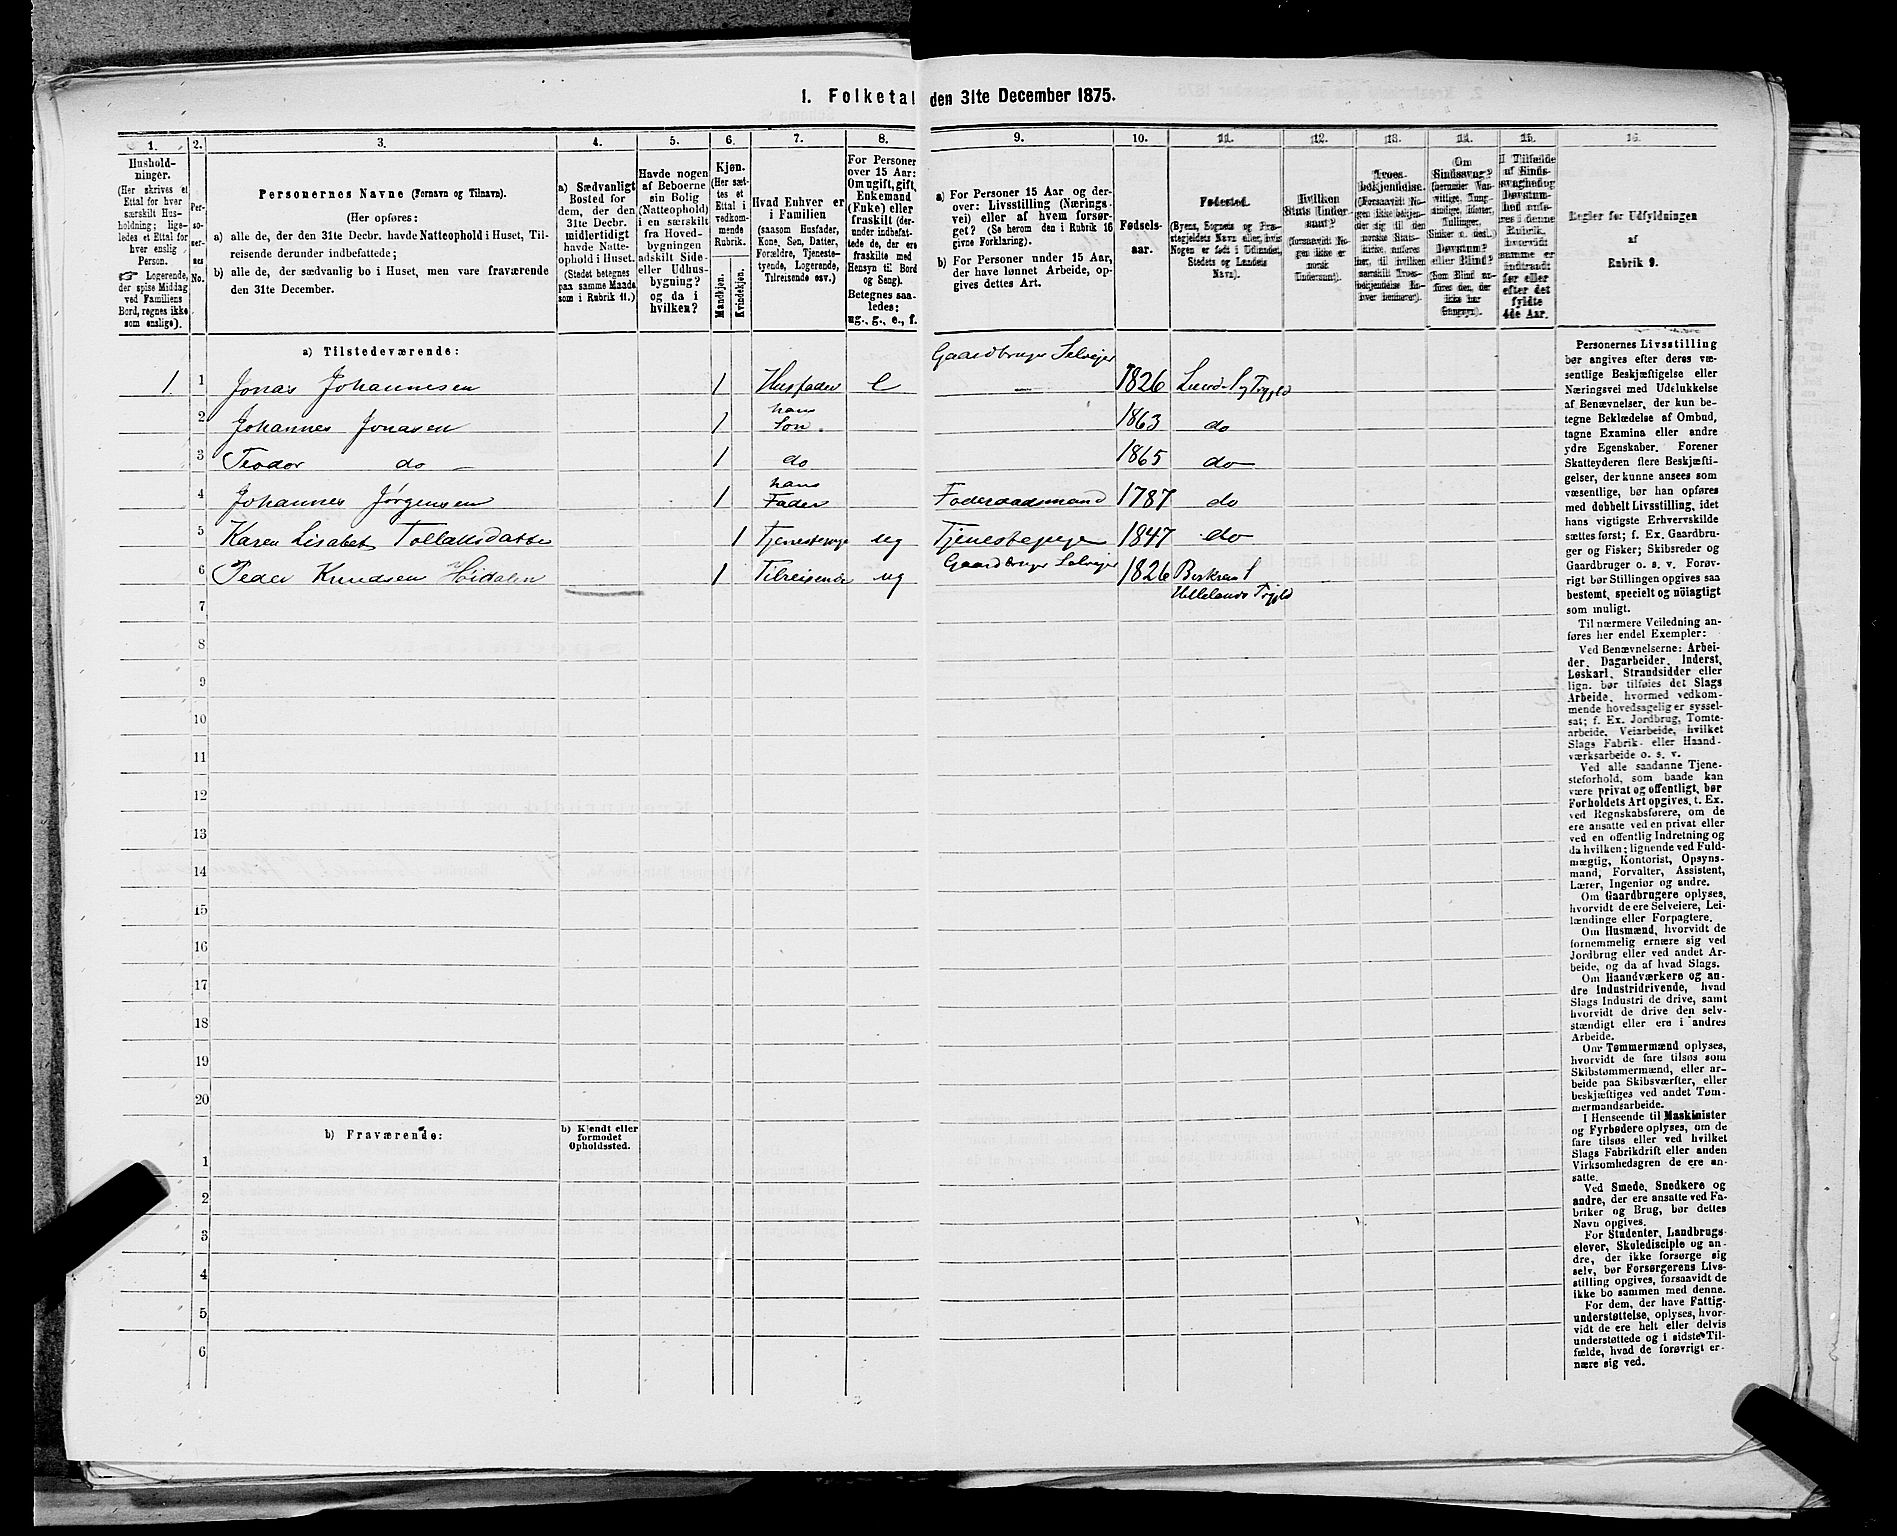 1. Folketal den 31te December 1875.
1.
2.
3.
4.
5.
6.
7.
8.
9.
10.
11.
12.
13.
14.
15.
16.
Hushold-
ninger.
(Her skrives et
Ettal for hver
særskilt Hus-
holdning; lige-
ledes et Ettal for
hver enslig
Person.
☞ Logerende,
der spise Middag
ved Familiens
Bord, regnes ikke
som enslige).
Per-
so-
ner-
nes
No.
Personernes Navne (Fornavn og Tilnavn).
(Her opføres:
a) alle de, der den 31te Decbr. havde Natteophold i Huset, Til-
reisende derunder indbefattede;
b) alle de, der sædvanlig bo i Huset, men vare fraværende
den 31te December.
a) Sædvanligt
Bosted for
dem, der den
31te Decbr.
midlertidigt
havde Natte-
ophold i Huset.
(Stedet betegnes
paa samme Maade
som i Rubrik 11.)
Havde nogen
af Beboerne
sin Bolig
(Natteophold)
i en særskilt
fra Hoved-
bygningen
adskilt Side-
eller Udhus-
bygning?
og da i
hvilken?
Kjøn.
(Her sæt-
tes et
Ettal i
vedkom-
mende
Rubrik.
Mandkjøn.
Kvindekjøn.
Hvad Enhver er
i Familien
(saasom Husfader,
Kone, Søn, Datter,
Forældre, Tjeneste-
tyende, Logerende,
Tilreisende osv.)
For Personer
over 15 Aar:
Om ugift, gift,
Enkemand
(Enke) eller
fraskilt (der-
under indbefat-
tede de, der ere
fraskilte med
Hensyn til Bord
og Seng).
Betegnes saa-
ledes:
ug., g., e., f.
a) For Personer 15 Aar og der-
over: Livsstilling (Nærings-
vei) eller af hvem forsør-
get? (Se herom den i Rubrik 16
givne Forklaring).
b) For Personer under 15 Aar,
der have lønnet Arbeide, op-
gives dettes Art.
Fødsels-
aar.
Fødested.
(Byens, Sognets og Præ-
stegjeldets Navn eller, hvis
Nogen er født i Udlandet,
Stedets og Landets
Navn).
Hvilken
Stats Under-
saat?
(forsaavidt No-
gen ikke er
norsk
Undersaat).
Troes-
bekjendelse.
(Forsaavidt No-
gen ikke bekjen-
der sig til den
norske Stats-
kirke, anføres
her, til hvilken
særskilt Troes-
bekjendelse En-
hver henhører).
Om
Sindssvag?
(herunder Van-
vittige, Tung-
sindige, Idioter,
Tullinger,
Sinker o. desl.).
Døvstum?
eller Blind?
(Som Blind an-
føres den, der
ikke har
Gangsyn).
I Tilfælde
af Sinds-
svaghed og
Døvstum-
hed anfø-
res i denne
Rubrik,
hvorvidt
samme er
indtraadt
før eller
efter det
fyldte
4de Aar.
Regler for Udfyldningen
af
Rubrik 9.
a) Tilstedeværende:
Gaardbruger Selveier
1 1 Jonas Johannesen 1 Husfader e — 1826 Lund
hans
2 Johannes Jonasen 1 Søn. 1863 do
3 Teodor do — 1 do 1865 do
hans
4 Johannes Jørgensen 1 Fader Foderaadsmand 1787 do
5 Karen Lisabet Tollaksdatter 1 Tjenestepige ug Tjenestepige 1847 do
Gaardbruger Selveier
6 Peder Knudsen Høidalen 1 Tilreisende ug 1826
Hellelands
7
8
9
10
11
12
13
14
15
16
17
18
19
20
b) Fraværende:
b) Kjendt eller
formodet
Opholdssted.
1
2
3
4
5
6
Personernes Livsstilling
bør angives efter deres væ-
sentlige Beskjæftigelse eller
Næringsvei med Udelukkelse
af Benævnelser, der kun be-
tegne Beklædelse af Ombud,
tagne Examina eller andre
ydre Egenskaber. Forener
Skatteyderen flere Beskjæfti-
gelser, der kunne ansees som
væsentlige, bør han opføres
med dobbelt Livsstilling, idet
hans vigtigste Erhvervskilde
sættes først; f. Ex. Gaardbru-
ger og Fisker; Skibsreder og
Gaardbruger o. s. v. Forøv-
rigt bør Stillingen opgives saa
bestemt, specielt og nöiagtigt
som muligt.
Til nærmere Veiledning an-
føres her endel Exempler:
Ved Benævnelserne: Arbei-
der, Dagarbeider, Inderst,
Løskarl, Strandsidder eller
lign. bør tilføies det Slags
Arbeide, hvormed vedkom-
mende hovedsagelig er syssel-
sat; f. Ex. Jordbrug, Tomte-
arbeide, Veiarbeide, hvilket
Slags Fabrik- eller Haand-
værksarbeide o. s. v.
Ved alle saadanne Tjene-
steforhold, som baade kan
være privat og offentligt, bør
Forholdets Art opgives, t. Ex.
ved Regnskabsførere, om de
ere ansatte ved en privat eller
ved en offentlig Indretning og
da hvilken; lignende ved Fuld-
mægtig, Kontorist, Opsyns-
mand, Forvalter, Assistent,
Lærer, Ingeniør og andre.
Om Gaardbrugere oplyses,
hvorvidt de ere Selveiere, Lei-
lændinge eller Forpagtere.
Om Husmænd, hvorvidt de
fornemmelig ernære sig ved
Jordbrug eller ved andet Ar-
beide, og da af hvad Slags.
Om Haandværkere og an-
dre industridrivende, hvad
Slags Industri de drive, samt
hvorvidt de drive den selv-
stændigt eller ere i andres
Arbeide.
Om Tømmermænd oplyses,
hvorvidt de fare tilsøs som
Skibstømmermænd, eller ar-
beide paa Skibsværfter, eller
beskjæftiges ved andet Tøm-
mermandsarbeide.
I Henseende til Maskinister
og Fyrbødere oplyses, om de
fare tilsøs eller ved hvilket
Slags Fabrikdrift eller anden
Virksomhedsgren de ere an-
satte.
Ved Smede, Snedkere og
andre, der ere ansatte ved Fa-
briker og Brug, bør dettes
Navn opgives.
For Studenter, Landbrugs-
elever, Skoledisciple og an-
dre, der ikke forsørge sig
selv, bør Forsørgerens Livs-
stilling opgives, forsaavidt de
ikke bo sammen med denne.
For dem, der have Fattig-
understøttelse, oplyses, hvor-
vidt de ere helt eller delvis
understøttede og i sidste Til-
fælde, hvad de forøvrigt er-
nære sig ved.